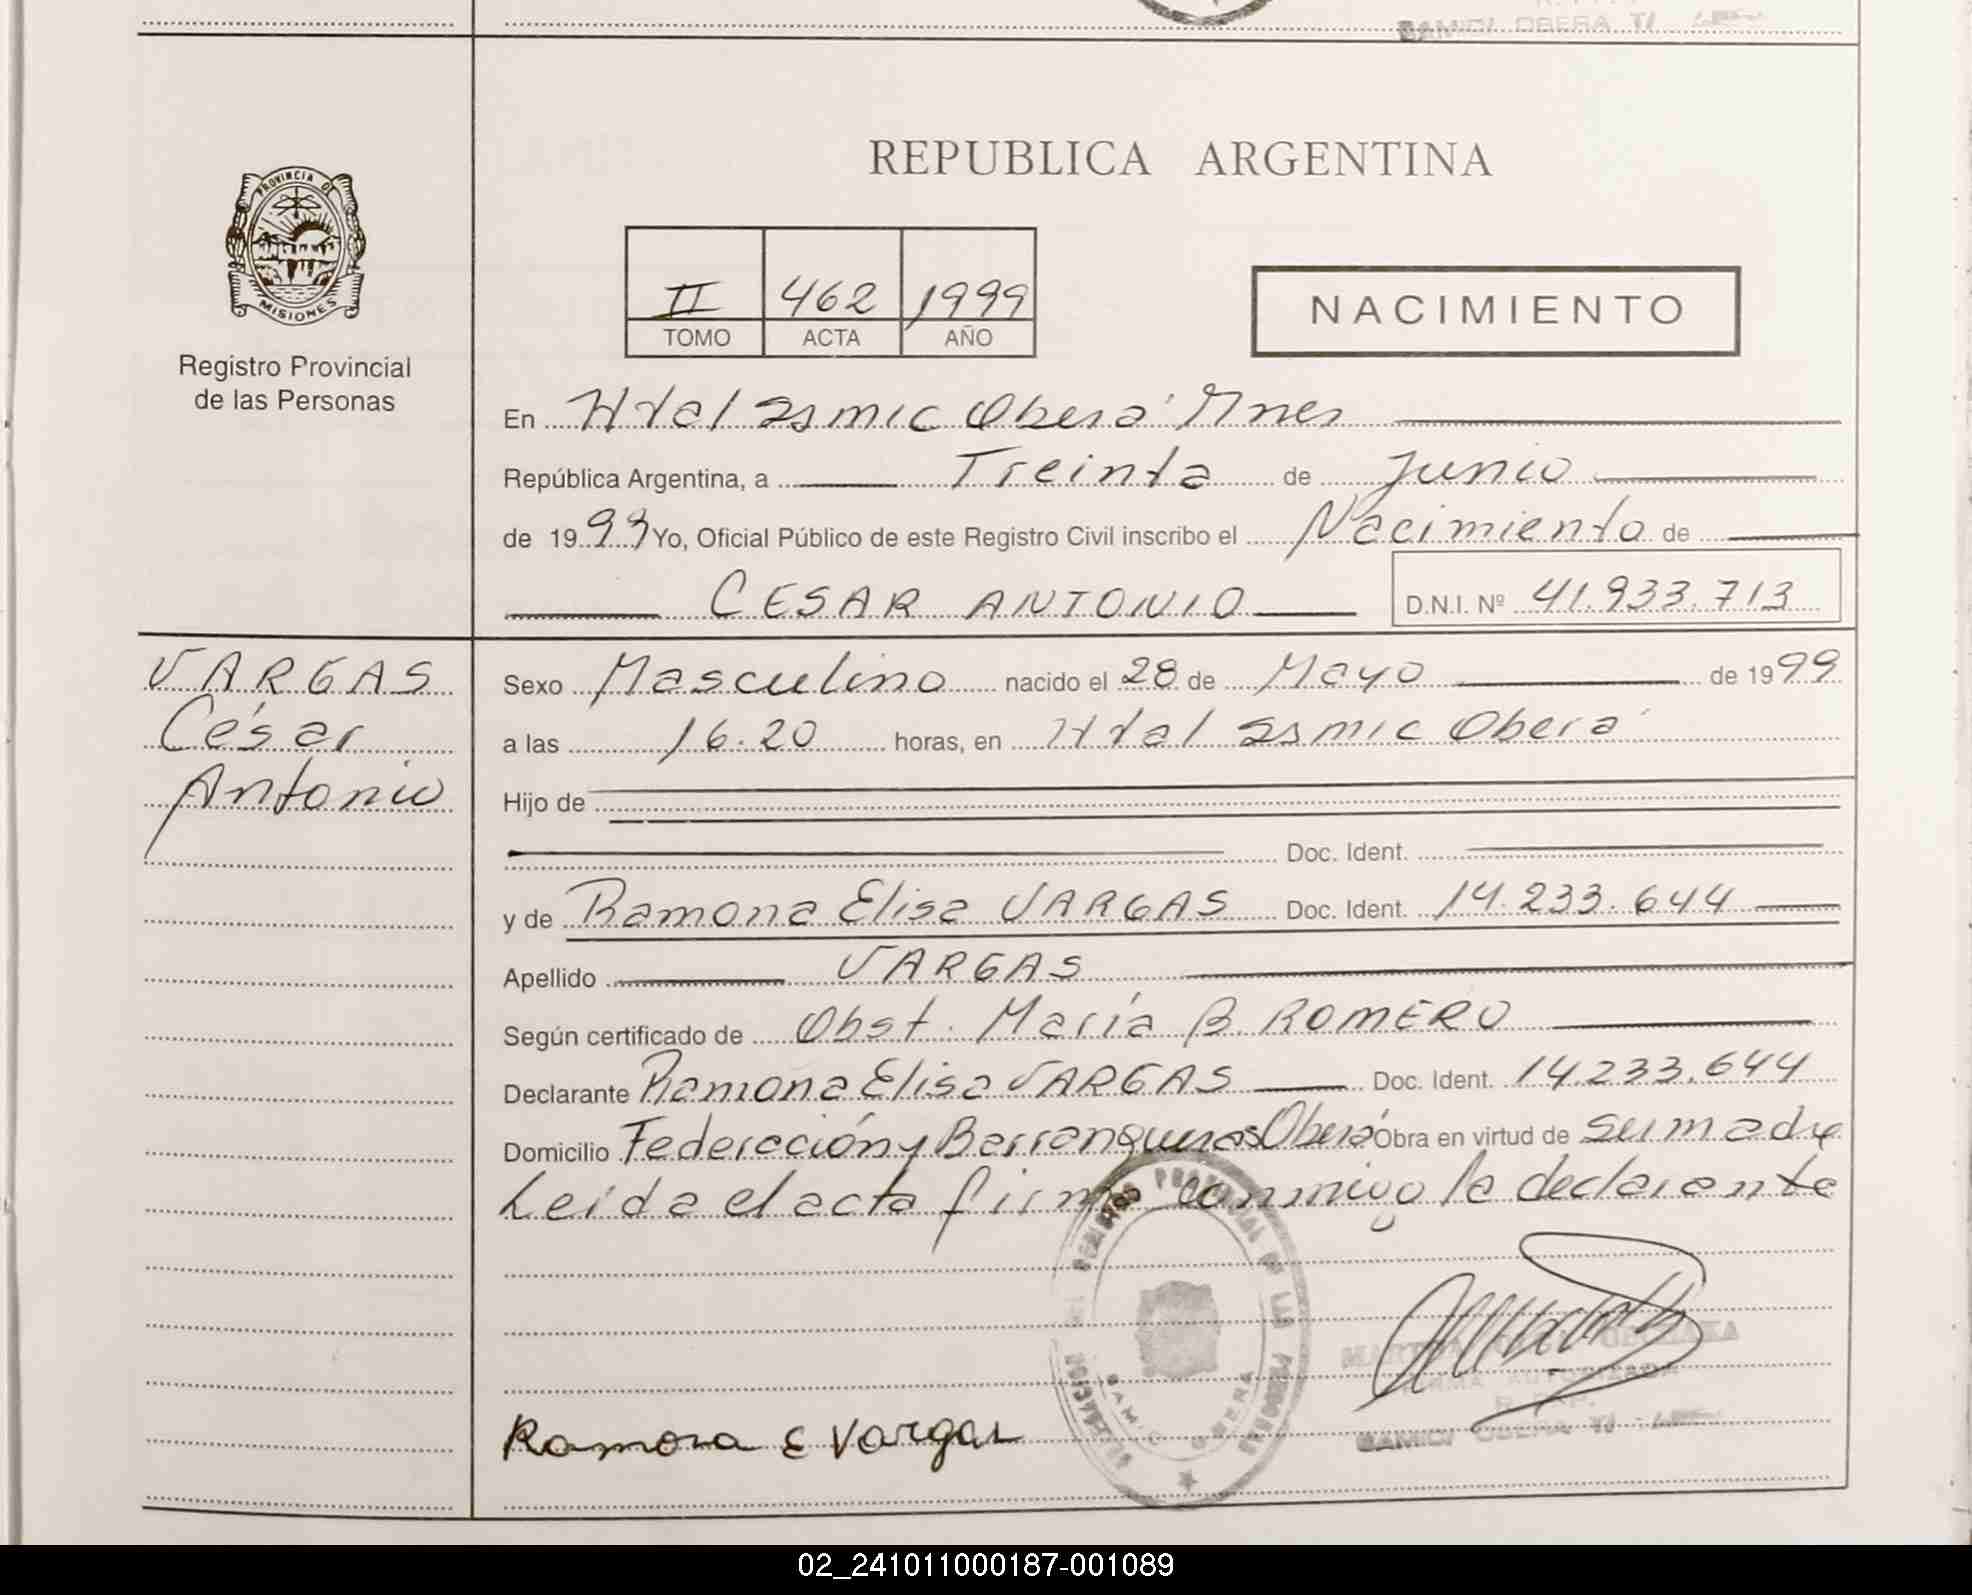 SAMIC/ OBERA T/
PROVINCIA DE
MISIONES
Registro Provincial
de las Personas
REPUBLICA ARGENTINA
II 462 1999
TOMO ACTA AÑO
NACIMIENTO
En Htal Samic Oberá Mnes
República Argentina, a Treinta de Junio
de 1999 Yo, Oficial Público de este Registro Civil inscribo el Nacimiento de
CESAR ANTONIO D.N.I. Nº 41.933.713
VARGAS
César
Antonio
Sexo Masculino nacido el 28 de Mayo de 1999
a las 16.20 horas, en Htal Samic Oberá
Hijo de
Doc. Ident.
y de Ramona Elisa VARGAS Doc. Ident. 14.233.644
Apellido VARGAS
Según certificado de Obst. María B. ROMERO
Declarante Ramona Elisa VARGAS Doc. Ident. 14.233.644
Domicilio Federación y Barranqueras Oberá Obra en virtud de su madre
Leída el acta firma conmigo la declarante
REGISTRO PROVINCIAL DE LAS PERSONAS
DELEGACION
SAMIC OBERA
FIRMA AUTORIZADA
SAMIC/ OBERA T/
Ramona E Vargas
02_241011000187-001089